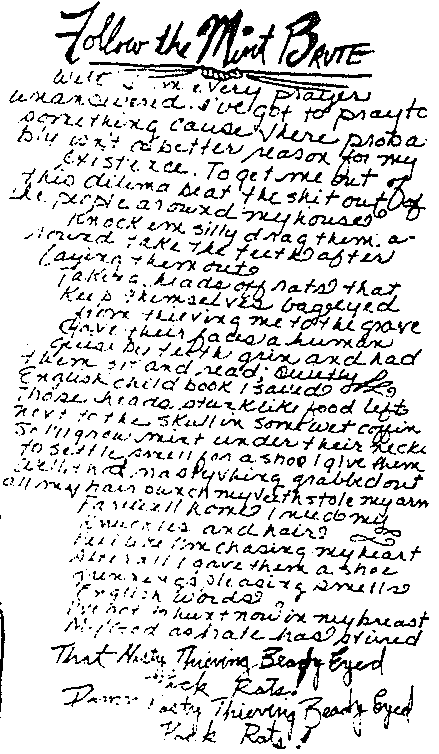 Follow the Mint BRUTE
Well I'm every prayer
unanswered. I've got to pray to
something cause there proba
bly isn't a better reason for my
existence. To get me out
this dilema beat the shit out of
the people around my house
Knock em silly drag them a-
round take the teeth after
laying them out
Taking heads off rats that
Keep themselves bageyed
from thieving me to the grave
Gave their faces a human
teeth grin and had
them sit and read; Quietly
English child book I saved
Those heads stunk like food left
next to the skull in some wet coffin
So I'll grow mint under their necks
to settle smell for a shoe I give them
nasty thing grabbed out
all my hair punch my teeth stole my arm
Farewell home I need my
Knuckles and hair
Feel like I'm chasing my heart
After all I gave them a shoe
pleasing smells
English words
I've got to hunt now in my breast
My God as hate has
That Nasty Thieving Beady Eyed
Pack Rats!
Damn Nasty Thieving Beady Eyed
Pack Rats!